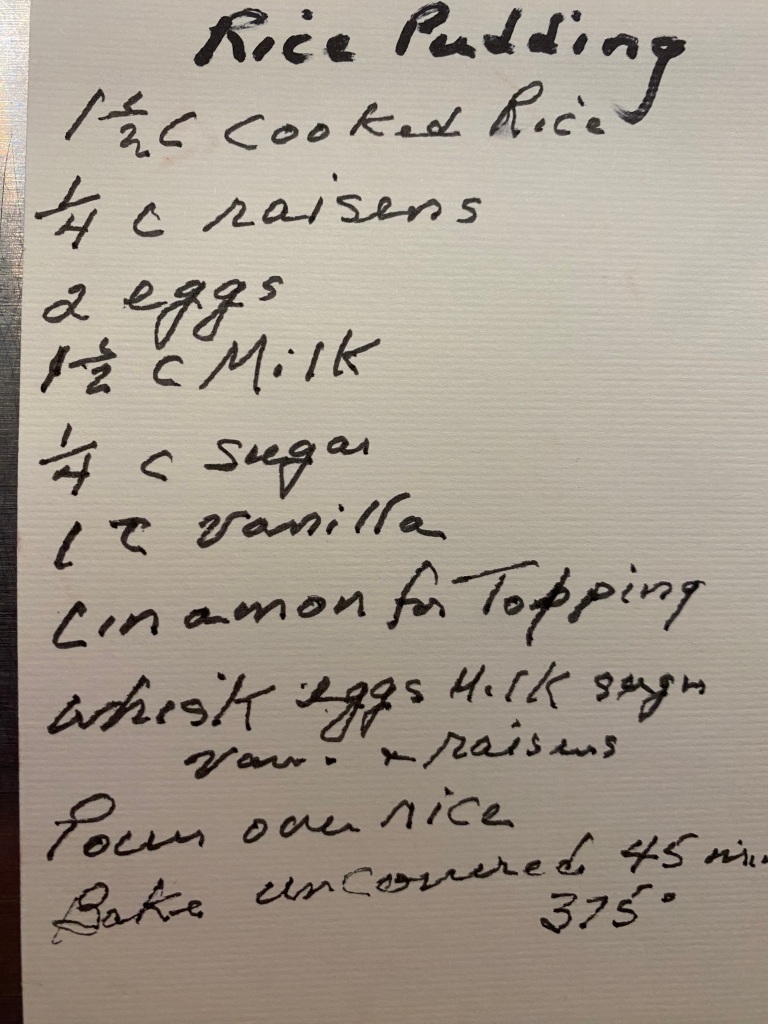 Rice Pudding
1 1/2 c cooked Rice
1/4 c raisens
2 eggs
1 1/2 c Milk
1/4 c sugar
1 t vanilla
Cinamon for Topping
whisk eggs Milk sugar
van. + raisens
Pour over rice
Bake uncovered 45 min
375°